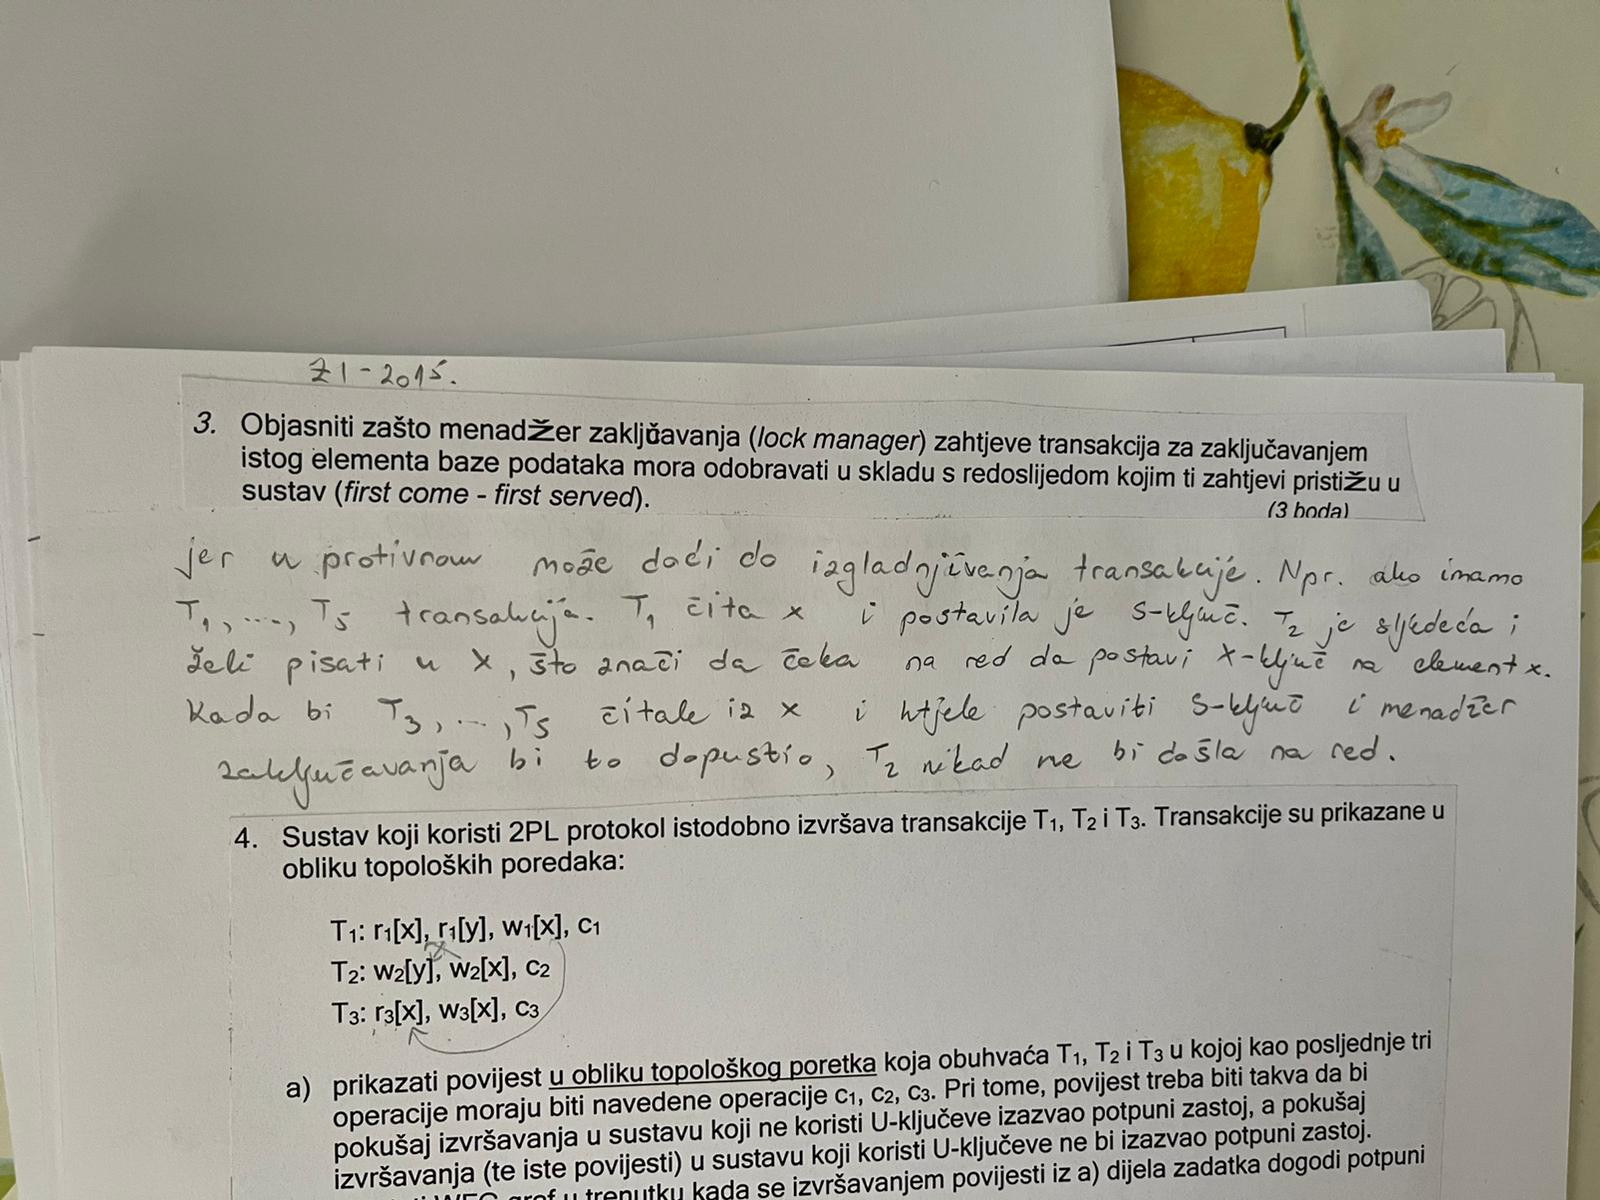 ZI - 2015.
3. Objasniti zašto menadžer zaključavanja (lock manager) zahtjeve transakcija za zaključavanjem
istog elementa baze podataka mora odobravati u skladu s redoslijedom kojim ti zahtjevi pristižu u
sustav (first come - first served).
(3 boda)
jer u protivnom može doći do izgladnjivanja transakcije. Npr. ako imamo
T1, ..., T5 transakcija. T1 čita x i postavila je S-ključ. T2 je sljedeća i
želi pisati u x, što znači da čeka na red da postavi X-ključ na element x.
Kada bi T3, ..., T5 čitale iz x i htjele postaviti S-ključ i menadžer
zaključavanja bi to dopustio, T2 nikad ne bi došla na red.
4. Sustav koji koristi 2PL protokol istodobno izvršava transakcije T1, T2 i T3. Transakcije su prikazane u
obliku topoloških poredaka:
T1: r1[x], r1[y], w1[x], c1
T2: w2[y], w2[x], c2
T3: r3[x], w3[x], c3
a) prikazati povijest u obliku topološkog poretka koja obuhvaća T1, T2 i T3 u kojoj kao posljednje tri
operacije moraju biti navedene operacije c1, c2, c3. Pri tome, povijest treba biti takva da bi
pokušaj izvršavanja u sustavu koji ne koristi U-ključeve izazvao potpuni zastoj, a pokušaj
izvršavanja (te iste povijesti) u sustavu koji koristi U-ključeve ne bi izazvao potpuni zastoj.
WFG graf u trenutku kada se izvršavanjem povijesti iz a) dijela zadatka dogodi potpuni